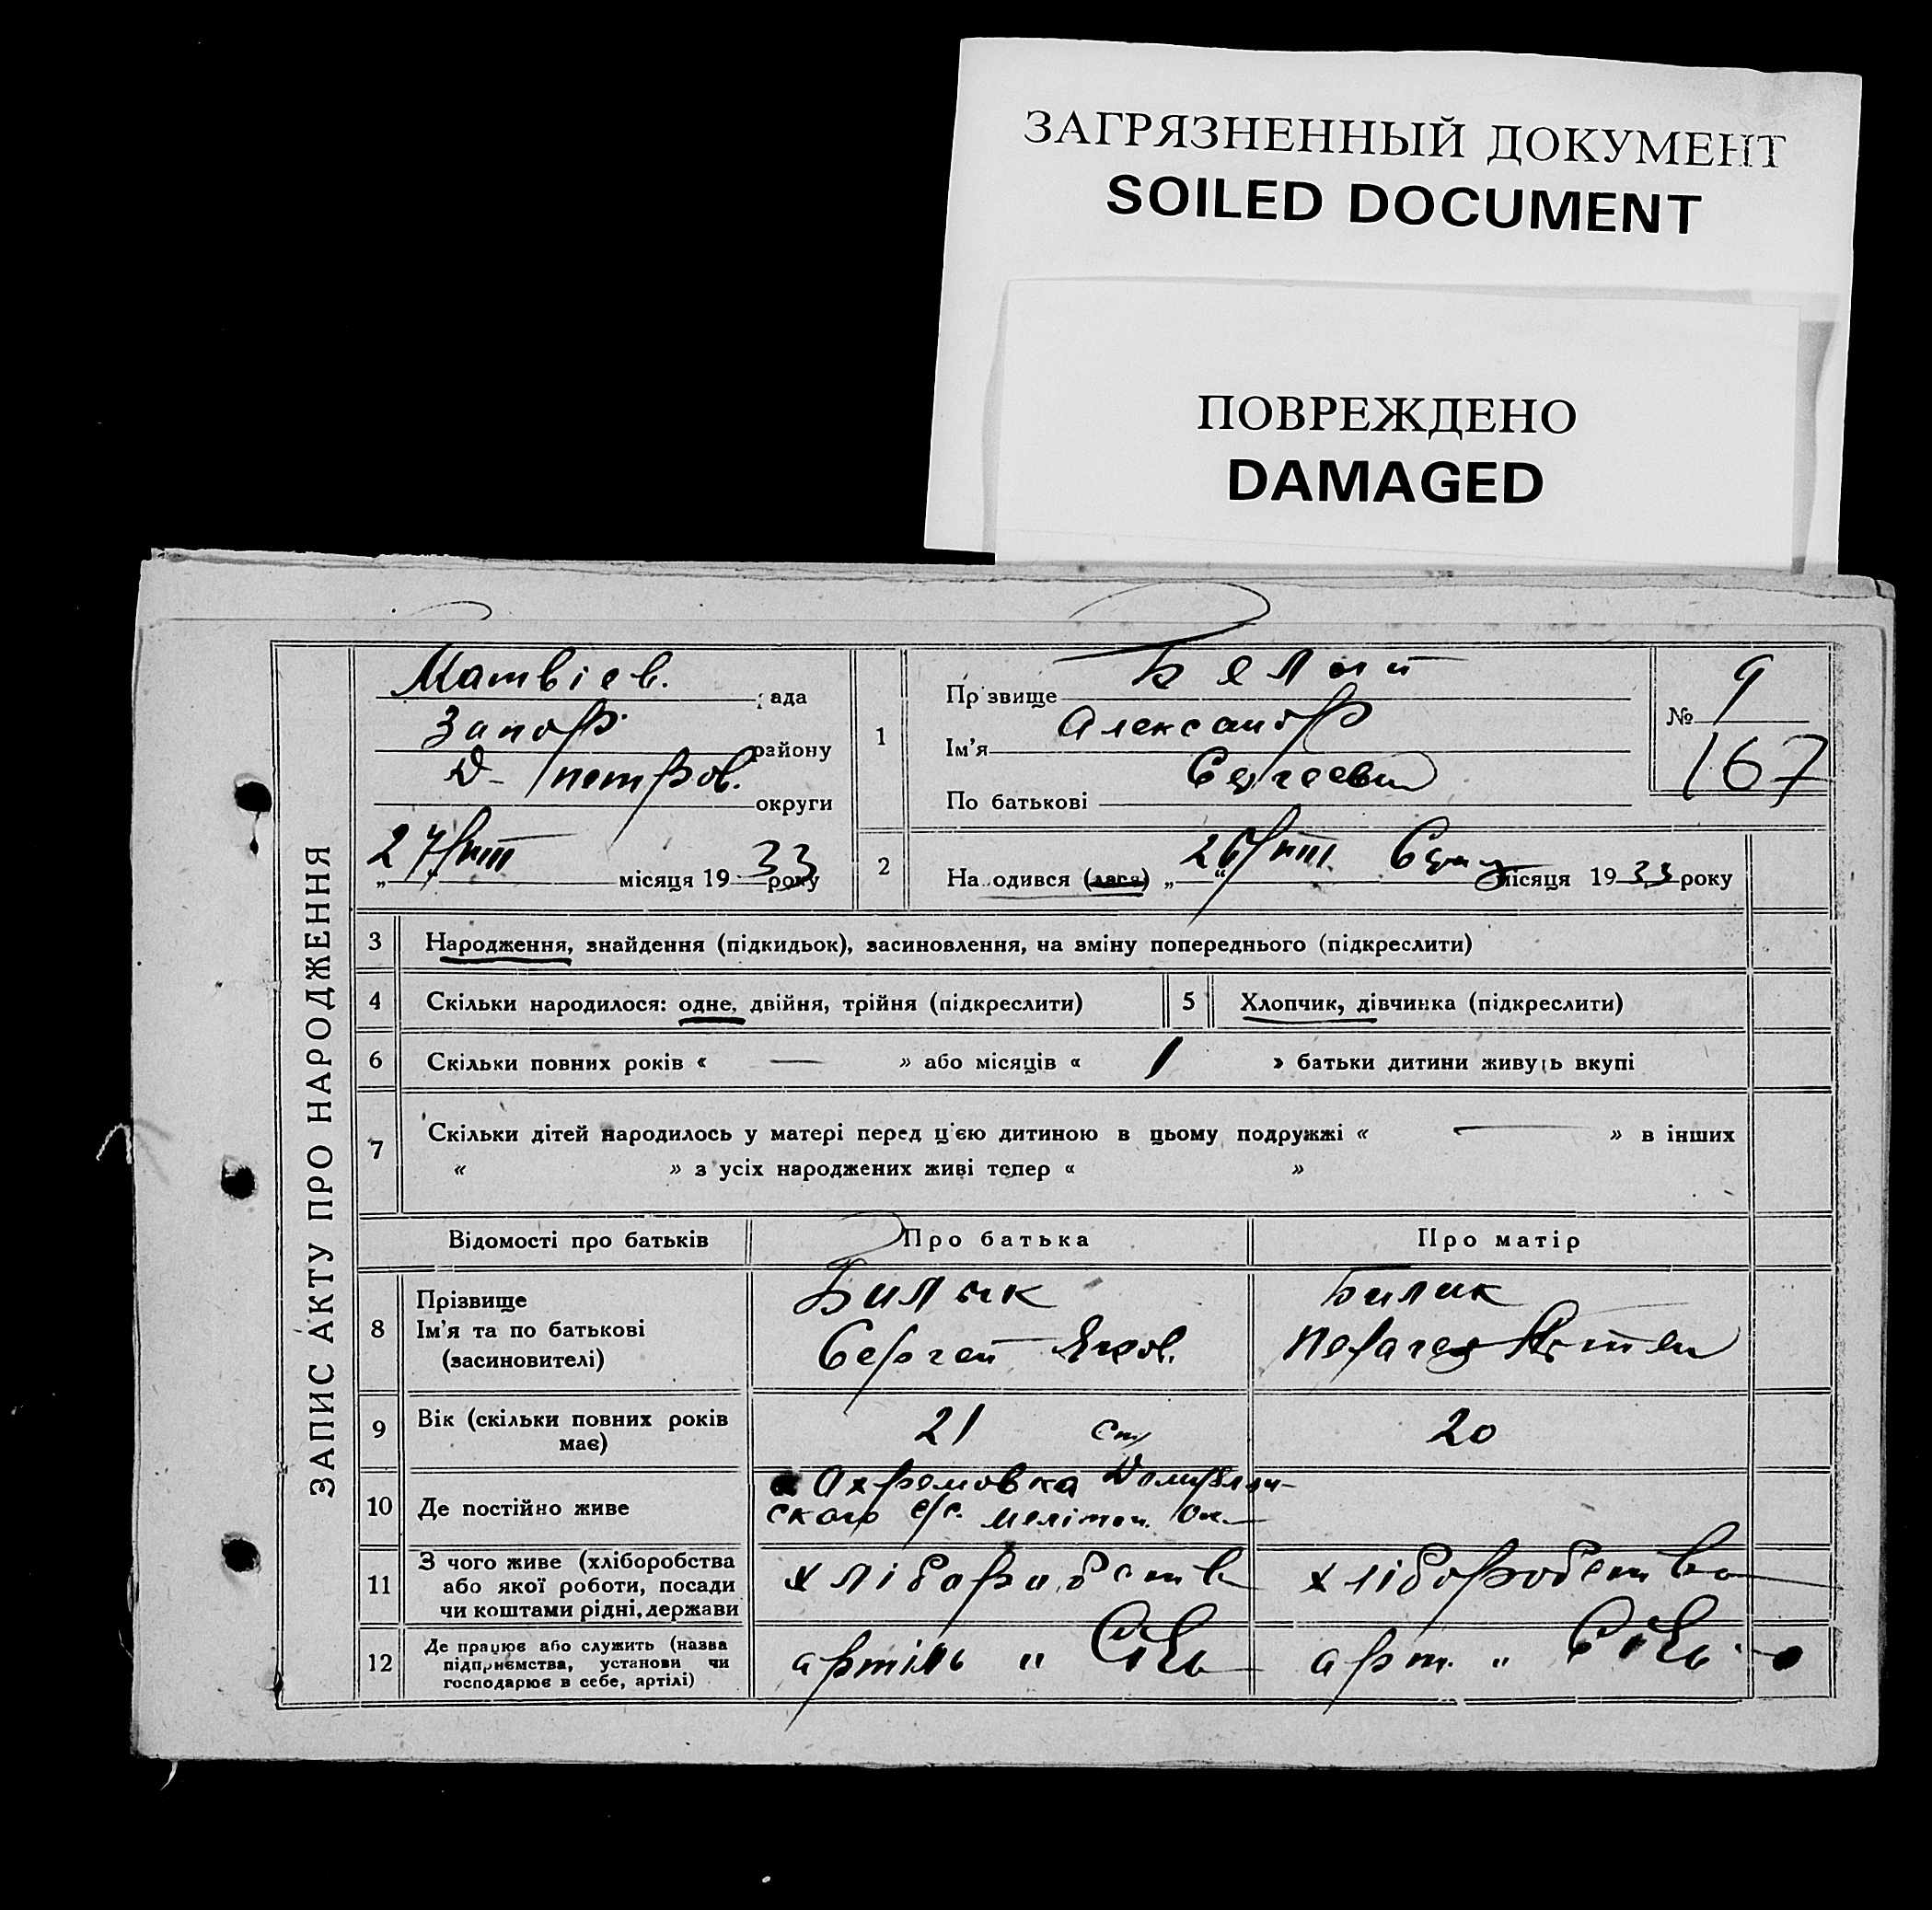 ЗАГРЯЗНЕННЫЙ ДОКУМЕНТ
SOILED DOCUMENT
ПОВРЕЖДЕНО
DAMAGED
ЗАПИС АКТУ ПРО НАРОДЖЕННЯ
Матвіев. рада
Запор. району
Д-петров. округи
27/VIII місяця 1933 року
1
Прізвище Белый
Ім'я Александр
По батькові Сергеевич
№ 9
167
2
На одився (лася) „26/VIII“ місяця 1933 року
3 Народження, знайдення (підкидьок), засиновлення, на зміну попереднього (підкреслити)
4 Скільки народилося: одне, двійня, трійня (підкреслити) 5 Хлопчик, дівчинка (підкреслити)
6 Скільки повних років « — » або місяців « 1 » батьки дитини живуть вкупі
7 Скільки дітей народилось у матері перед цією дитиною в цьому подружжі « — » в інших
« » з усіх народжених живі тепер « »
Відомості про батьків Про батька Про матір
8 Прізвище
Ім'я та по батькові
(засиновителі)
Билык
Сергей Яков.
Билик
9 Вік (скільки повних років
має)
21
20
10 Де постійно живе
Охремовка
ского с/с. Меліточ.
11 З чого живе (хліборобства
або якої роботи, посади
чи коштами рідні, держави
хліборобств
хліборобства
12 Де працює або служить (назва
підприємства, установи чи
господарює в себе, артілі)
артіль "
арт. "